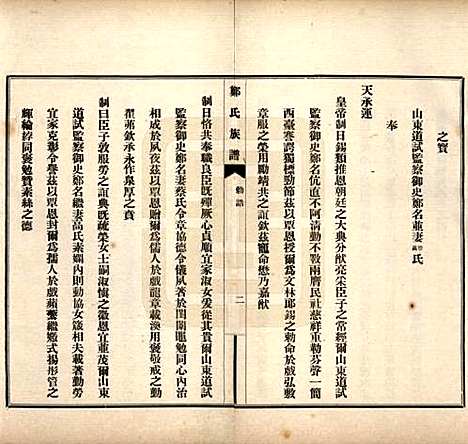 之寶
山東道試監察御史鄭名並妻蔡高氏
奉
天承運
皇帝制曰錫類推恩朝廷之大典分猷亮采臣子之常經爾山東道試
監察御史鄭名伉直不阿清勤不斁兩膺民社慈祥重勒芬聲一簡
西臺謇諤獨標勁節茲以覃恩授爾爲文林郎錫之勅命於戲弘敷
章服之榮用勵靖共之誼欽茲寵命懋乃嘉猷
鄭氏族譜
勅誥
二
制曰恪共奉職良臣旣殫厥心貞順宜家淑女爰從其貴爾山東道試
監察御史鄭名妻蔡氏令章協德令儀夙著於閨闈黽勉同心內治
相成於夙夜茲以覃恩贈爾爲孺人於戲龍章載渙用褒敬戒之勤
翟茀欽承永作泉厚之賁
制曰臣子敦服勞之誼典旣疏榮女士嗣淑愼之徽恩宜並茂爾山東
道試監察御史鄭名繼妻高氏素嫻內則動協女箴相夫載著勤勞
宜家克彰令譽茲以覃恩封爾爲孺人於戲蘋蘩繼毖式揚彤管之
輝綸綍同褒勉贊素絲之德